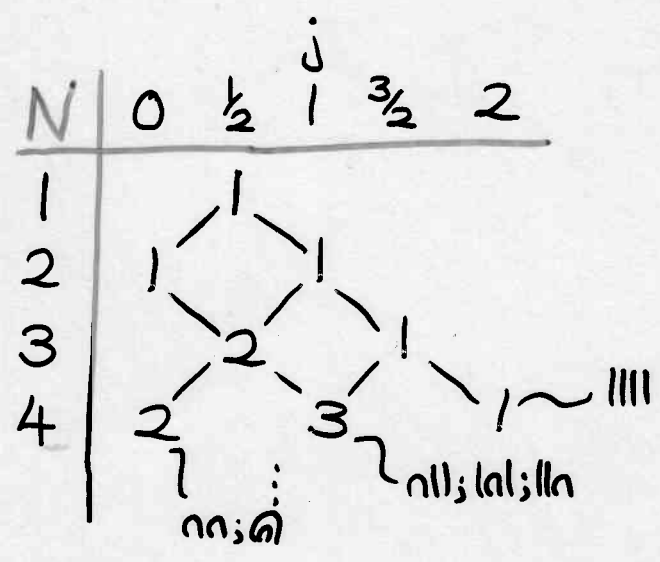 j
N 0 ½ 1 3/2 2
1 1
2 1 1
3 2 1
4 2 3 1 ||||
∩||; |∩|; ||∩
∩∩;